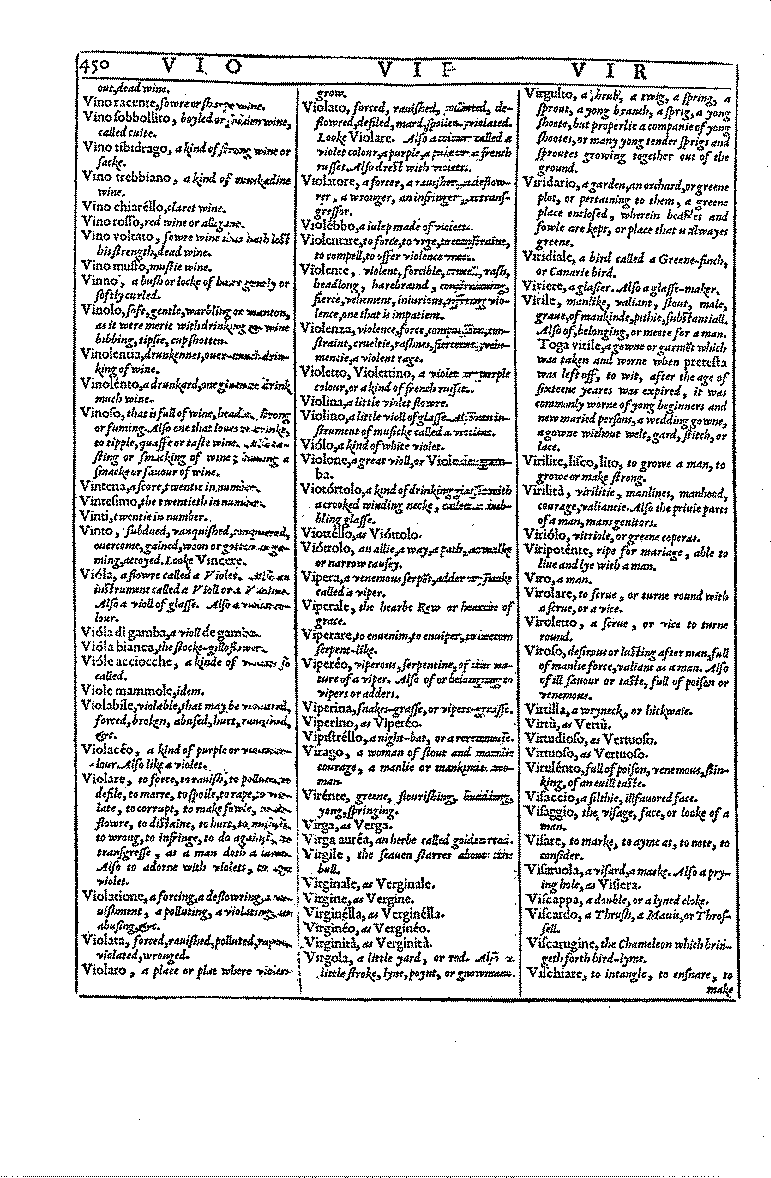 450 VIO VIP VIR
out, dead wine.
Vino racente, sowre or sharpe wine.
Vino sobbollito, boyled or wine,
called cute.
Vino tibidrago, a kind of strong wine or
sacke.
Vino trebbiano, a kind of muskadine
wine.
Vino chiaréllo, claret wine.
Vino rosso, red wine or
Vino volcato, sowre wine that hath lost
his strength, dead wine.
Vino musto, mustie wine.
Vinno, a bush or locke of haire gently or
softly curled.
Vinolo, soft, gentle, warbling or wanton,
as it were merie with drinking or wine
bibbing, tipsie, cupshotten.
Vinolenua, drunkennes, ouer-much drin-
king of wine.
Vinolénto, a drunkard, one giuen to drink
much wine.
Vinoso, that is full of wine, strong
or fuming. Also one that loues to drinke,
to tipple, quaffe or taste wine. Also ta-
sting or smacking of wine; hauing a
smacke or sauour of wine.
Vintena, a score, twentie in number.
Vintesimo, the twentieth in number.
Vinti, twentie in number.
Vinto, subdued, vanquished, conquered,
ouercome, gained, woon or gotten
Looke Vincere.
Vióla, a flowre called a Violet. Also an
instrument called a Violl or a Violine.
Also a violl of glasse. Also a violet co-
lour.
Vióla di gamba, a violl de gamba.
Vióla bianca, the stocke-gilloflower.
Vióle acciocche, a kinde of violets so
called.
Viole mammole, idem.
Violabile, violable, that may be violated,
forced, broken, abused, hurt,
&c.
Violacéo, a kind of purple or violet co-
lour. Also like a violet.
Violare, to force, to rauish, to pollute, to
defile, to marre, to spoile, to rape, to vio-
late, to corrupt, to make fowle, to de-
flowre, to distaine, to hurt,
to wrong, to infringe, to do against, to
transgresse, as a man doth a lawe.
Also to adorne with violets,
violet.
Violatione, a forcing, a deflowring, a ra-
uishment, a polluting, a violating, an
abusing, &c.
Violata, forced, rauished, polluted,
violated, wronged.
Violaro, a place or plat where violets
grow.
Violato, forced, rauished, de-
flowred, defiled, mard, spoiled, violated.
Looke Violare. Also a colour called a
violet colour, a purple, a or a french
russet. Also drest with violets.
Violatore, a forcer, a rauisher, a deflow-
rer, a wronger, an infringer, a trans-
gressor.
Violébbo, a iulep made of violets.
Violentare, to force, to vrge, to constraine,
to compell, to offer violence
Violente, violent, forcible, cruell, rash,
headlong, harebraind,
fierce, vehement, iniurious, offring vio-
lence, one that is impatient.
Violenza, violence, force, compulsion, con-
straint, crueltie, rashnes, fiercenes, vehe-
mencie, a violent rage.
Violetto, Violettino, a violet or purple
colour, or a kind of french russet.
Violina, a little violet flowre.
Violino, a little violl of glasse. Also an in-
strument of musicke called a violine.
Viólo, a kind of white violet.
Violone, a great violl, or Viole de gam-
ba.
Viotóttolo, a kind of drinking glasse with
a crooked winding necke,
bling glasse.
Viottéllo, as Vióttolo.
Vióttolo, an allie, a way, a path, a walke
or narrow causey.
Vipera, a venemous serpēt, adder or snake
called a viper.
Viperale, the hearbe Rew or hearbe of
grace.
Viperare, to enuenim, to enuiper, to become
serpent-like.
Viperéo, viperous, serpentine, of the na-
ture of a viper. Also of or belonging to
vipers or adders.
Viperina, snakes-grasse, or vipers-grasse.
Viperino, as Viperéo.
Vipistréllo, a night-bat, or a reremouse.
Virago, a woman of stout and manlie
courage, a manlie or mankinde wo-
man.
Virénte, greene, flourishing, budding,
yong, springing.
Virga, as Verga.
Virga auréa, an herbe called goldenrod.
Virgile, the seauen starres about the
bull.
Virginale, as Verginale.
Virgine, as Vergine.
Virginélla, as Verginélla.
Virginéo, as Verginéo.
Virginità, as Verginità.
Virgola, a little yard, or rod. Also a
little stroke, lyne, poynt, or
Virgulto, a shrub, a twig, a spring, a
sprout, a yong branch, a sprig, a yong
shoote, but properlie a companie of yong
shootes, or many yong tender sprigs and
sproutes growing together out of the
ground.
Viridario, a garden, an orchard, or greene
plot, or pertaining to them, a greene
place enclosed, wherein beastes and
fowle are kept, or place that is alwayes
greene.
Virsdiale, a bird called a Greene-finch,
or Canarie bird.
Viriere, a glasier. Also a glasse-maker.
Virile, manlike, valiant, stout, male,
graue, of mankinde, pithie, substantiall.
Also of, belonging, or meete for a man.
Toga virile, a gowne or garmēt which
was taken and worne when pretesta
was left off, to wit, after the age of
sixteene yeares was expired, it was
commonly worne of yong beginners and
new maried persons, a wedding gowne,
a gowne without welt, gard, stitch, or
lace.
Virilire, lisco, lito, to growe a man, to
growe or make strong.
Virilità, virilitie, manlines, manhood,
courage, valiancie. Also the priuie parts
of a man, mans genitors.
Viriólo, vitriole, or greene coperas.
Viripotènte, ripe for mariage, able to
liue and lye with a man.
Viro, a man.
Virolare, to scrue, or turne round with
a scrue, or a vice.
Viroletto, a scrue, or vice to turne
round.
Viroso, desirous or lusting after man, full
of manlie force, valiant as a man. Also
of ill sauour or taste, full of poison or
venemous.
Virtilla, a wryneck, or hickwaie.
Virtù, as Vertù.
Virtudioso, as Vertuoso.
Virtuoso, as Vertuoso.
Virulénto, full of poison, venemous, stin-
king, of an euill taste.
Visaccio, a filthie, illfauored face.
Visaggio, the visage, face, or looke of a
man.
Visare, to marke, to ayme at, to note, to
consider.
Visaruola, a visard, a maske. Also a pry-
ing hole, as Visiera.
Viscappa, a double, or a lyned cloke.
Viscardo, a Thrush, a Mauis, or Thros-
sell.
Viscarugine, the Chameleon which brin-
geth forth bird-lyme.
Vischiare, to intangle, to ensnare, to
make